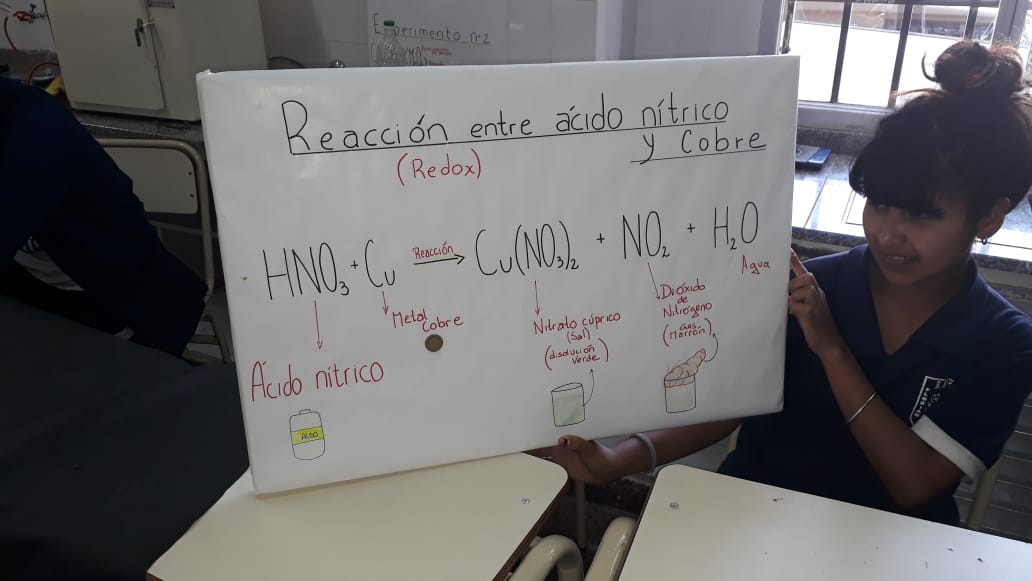 Experimento nº2
Reacción entre ácido nítrico
y Cobre
(Redox)
HNO₃ + Cu Reacción → Cu(NO₃)₂ + NO₂ + H₂O
Ácido nítrico
Metal
Cobre
Nitrato cúprico
(Sal)
(disolución
verde)
Dióxido
de
Nitrógeno
(Gas
Marrón)
Agua
ACIDO